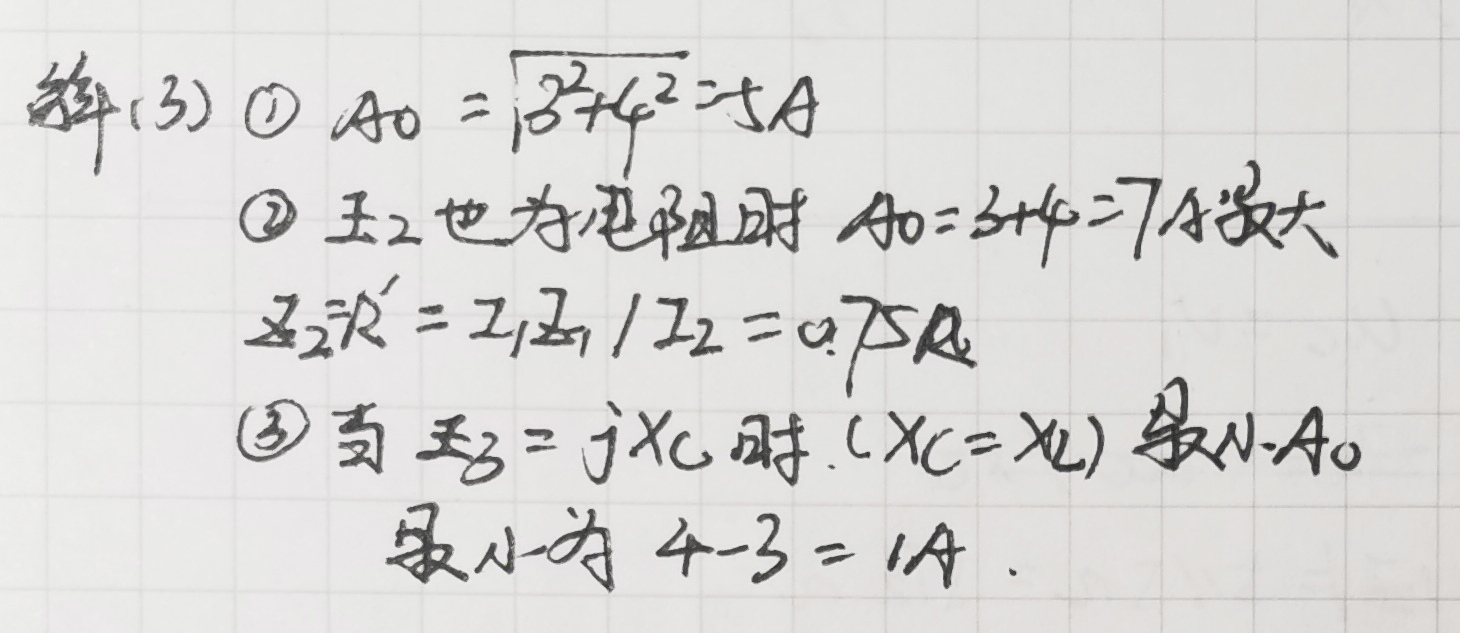 解(3) ① A0 = √3²+4² = 5A
② Z2 也为电阻时 A0=3+4=7A最大
Z2=R' = I1Z1/I2 = 0.75R
③ 当 Z3 = jXC 时.(XC=XL) 最小.A0
最小为 4-3 = 1A.